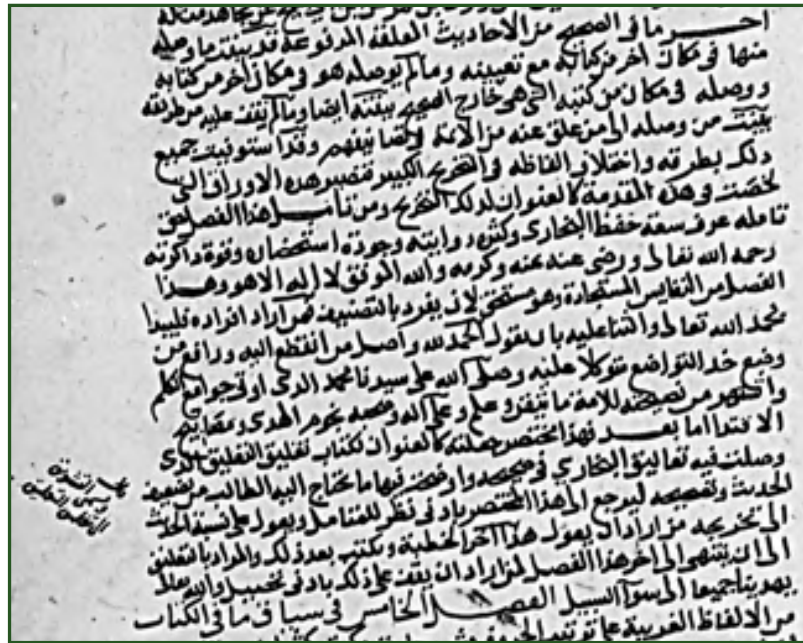 احر ما فى الصحيح من الاحاديث المعلقه المرفوعة قد بينت ما وصله
منها فى مكان اخر من كتابه مع تعيينه وما لم يوصله هو فى مكان اخر من كتابه
ووصله فى مكان من كتبه التى هى خارج الصحيح بينته ايضا وما لم يقف عليه من طريقه
بينت من وصله الى من علق عنه من الائمة فى تصانيفهم وقد استوفيت جميع
ذلك بطرقه واختلاف الفاظه فى التخريج الكبير فتصير هذه الاوراق التى
لخصت فى هذه المقدمة كالعنوان لذلك التخريج ومن تأمل هذا الفصل حق
تامله عرف سعة حفظ البخارى وكثرة روايته وجودة استحضاره وقوة ذاكرته
رحمه الله تعالى ورضى عنه بمنه وكرمه والله الموفق لا اله الا هو وهذا
الفصل من النفايس المستجادة وهو مستحق لان يفرد بالتصنيف فمن اراد افراده فليبدا
بحمد الله تعالى والثنا عليه بان يقول الحمد لله واصل من انقطع اليه ورافع من
وضع خد التواضع متوكلا عليه وصلى الله على سيدنا محمد الذى اوتى جوامع الكلم
واشتهر من نصيحته للامة ما بين وعلم وعلى اله وصحبه نجوم الهدى ومفاتيح
الاقتدا اما بعد فهذا مختصر جعلته كالعنوان لكتاب تغليق التعليق الذى
وصلت فيه تعاليق البخاري فى صحيحه واوضحت فيها ما يحتاج اليه الطالب من تضعيف
الحديث وتصحيحه ليرجع الى هذا المختصر بادنى نظر المتامل ويعول على نسبة الحديث
الى تخريجه من اراد ان يعول هذا اخر الخطبة ويكتب بعد ذلك والمراد بالتعليق
الى ان ينتهى الى اخر هذا الفصل لمن اراد ان يقف على ذلك بادنى تحصيل والله تعالى
يهدينا جميعا الى سوآ السبيل الفصل الخامس فى سياق ما فى الكتاب
من الالفاظ الغريبة على ترتيب الحروف